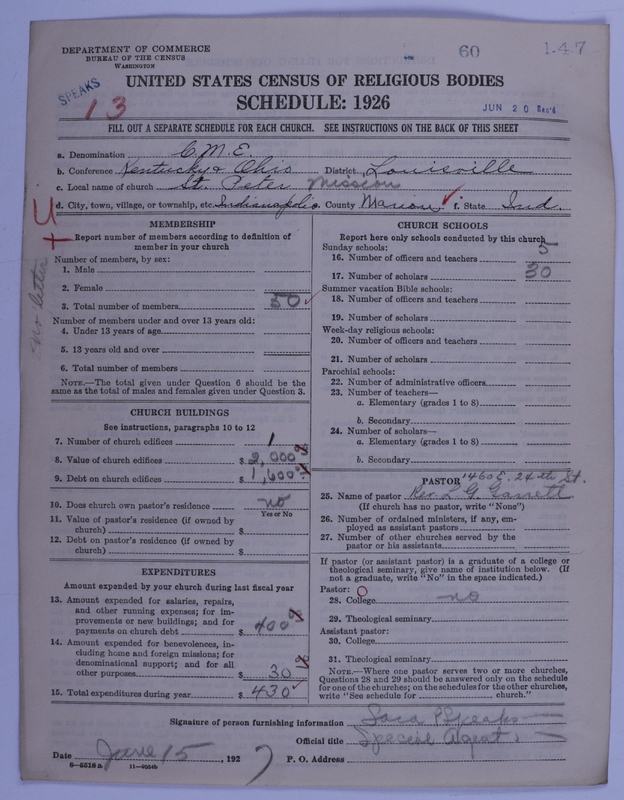 60 1.47
DEPARTMENT OF COMMERCE
BUREAU OF THE CENSUS
WASHINGTON
SPEAKS
13
UNITED STATES CENSUS OF RELIGIOUS BODIES
SCHEDULE: 1926
JUN 20 Rec'd
FILL OUT A SEPARATE SCHEDULE FOR EACH CHURCH. SEE INSTRUCTIONS ON THE BACK OF THIS SHEET
a. Denomination C.M.E.
b. Conference Kentucky & Ohio District Louisville
c. Local name of church St. Peter Mission
d. City, town, village, or township, etc. Indianapolis County Marion f. State Ind.
no letter
MEMBERSHIP
Report number of members according to definition of
member in your church
Number of members, by sex:
1. Male
2. Female
3. Total number of members 50
Number of members under and over 13 years old:
4. Under 13 years of age
5. 13 years old and over
6. Total number of members
NOTE.—The total given under Question 6 should be the
same as the total of males and females given under Question 3.
CHURCH BUILDINGS
See instructions, paragraphs 10 to 12
7. Number of church edifices 1
8. Value of church edifices $ 2,000
9. Debt on church edifices $ 1,600
10. Does church own pastor's residence no
Yes or No
11. Value of pastor's residence (if owned by
church) $
12. Debt on pastor's residence (if owned by
church) $
EXPENDITURES
Amount expended by your church during last fiscal year
13. Amount expended for salaries, repairs,
and other running expenses; for im-
provements or new buildings; and for
payments on church debt $ 400
14. Amount expended for benevolences, in-
cluding home and foreign missions; for
denominational support; and for all
other purposes $ 30
15. Total expenditures during year $ 430
CHURCH SCHOOLS
Report here only schools conducted by this church
Sunday schools:
16. Number of officers and teachers 5
17. Number of scholars 30
Summer vacation Bible schools:
18. Number of officers and teachers
19. Number of scholars
Week-day religious schools:
20. Number of officers and teachers
21. Number of scholars
Parochial schools:
22. Number of administrative officers
23. Number of teachers—
a. Elementary (grades 1 to 8)
b. Secondary
24. Number of scholars—
a. Elementary (grades 1 to 8)
b. Secondary
PASTOR 1460 E. 24th St.
25. Name of pastor Rev. L. G. Garrett
(If church has no pastor, write "None")
26. Number of ordained ministers, if any, em-
ployed as assistant pastors
27. Number of other churches served by the
pastor or his assistants
If pastor (or assistant pastor) is a graduate of a college or
theological seminary, give name of institution below. (If
not a graduate, write "No" in the space indicated.)
Pastor:
28. College no
29. Theological seminary
Assistant pastor:
30. College
31. Theological seminary
NOTE.—Where one pastor serves two or more churches,
Questions 28 and 29 should be answered only on the schedule
for one of the churches; on the schedules for the other churches,
write "See schedule for church."
Signature of person furnishing information Sara Speaks
Official title Special Agent
Date June 15, 1927 P. O. Address
8—5518 a 11—9054b